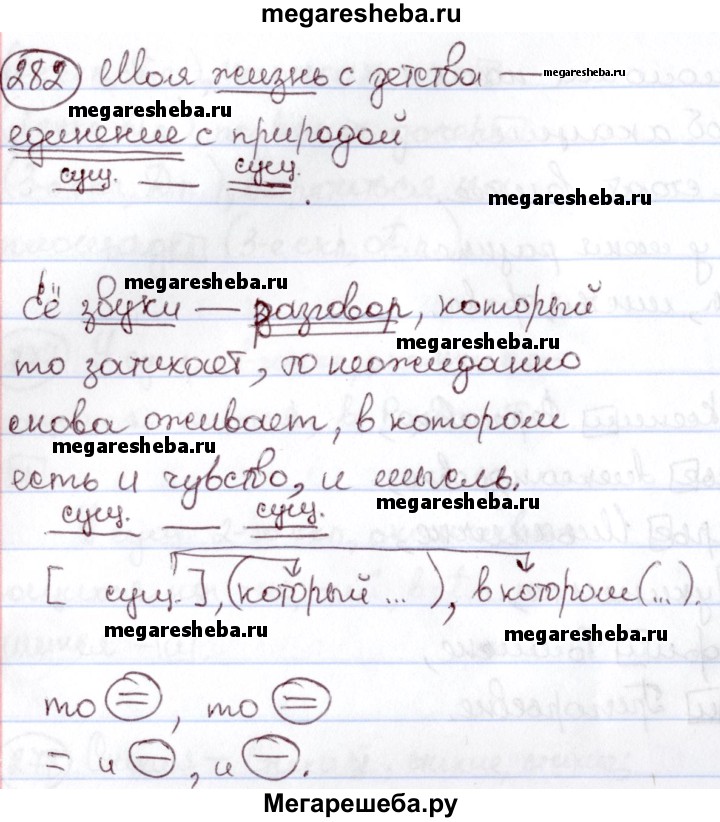 megaresheba.ru
282 Моя жизнь с детства — megaresheba.ru
megaresheba.ru
единение с природой
сущ. — сущ.
megaresheba.ru
megaresheba.ru
Её звуки — разговор, который
megaresheba.ru
то затихает, то неожиданно
снова оживает, в котором
megaresheba.ru
есть и чувство, и мысль.
megaresheba.ru
сущ. — сущ.
[ сущ. ], (который ... ), в котором (...).
megaresheba.ru
megaresheba.ru
то =, то =
= и –, и –.
Мегарешеба.ру